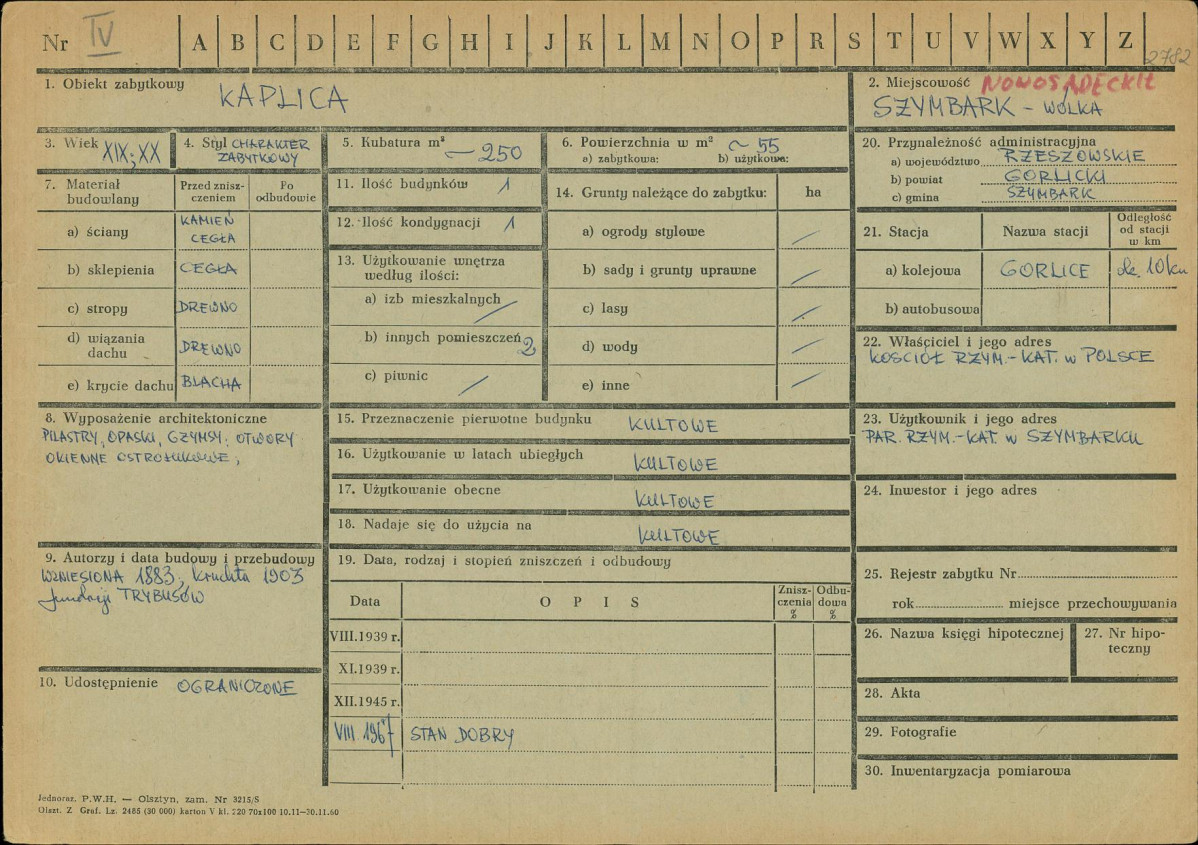 Nr IV A B C D E F G H I J K L M N O P R S T U V W X Y Z
2782
1. Obiekt zabytkowy KAPLICA
2. Miejscowość NOWOSĄDECKIE
SZYMBARK - WÓLKA
3. Wiek XIX; XX
4. Styl CHARAKTER
ZABYTKOWY
5. Kubatura m³ ~ 250
6. Powierzchnia w m² ~ 55
a) zabytkowa: b) użytkowa:
7. Materiał
budowlany
Przed znisz-
czeniem
Po
odbudowie
a) ściany KAMIEŃ
CEGŁA
b) sklepienia CEGŁA
c) stropy DREWNO
d) wiązania
dachu DREWNO
e) krycie dachu BLACHA
8. Wyposażenie architektoniczne
PILASTRY, OPASKI, GZYMSY, OTWORY
OKIENNE OSTROŁUKOWE,
9. Autorzy i data budowy i przebudowy
WZNIESIONA 1883, kruchta 1903
fundacji TRYBUSÓW
10. Udostępnienie OGRANICZONE
11. Ilość budynków 1
12. Ilość kondygnacji 1
13. Użytkowanie wnętrza
według ilości:
a) izb mieszkalnych /
b) innych pomieszczeń 2
c) piwnic /
14. Grunty należące do zabytku: ha
a) ogrody stylowe /
b) sady i grunty uprawne /
c) lasy /
d) wody /
e) inne /
15. Przeznaczenie pierwotne budynku KULTOWE
16. Użytkowanie w latach ubiegłych KULTOWE
17. Użytkowanie obecne KULTOWE
18. Nadaje się do użycia na KULTOWE
19. Data, rodzaj i stopień zniszczeń i odbudowy
Data OPIS
Znisz-
czenia
%
Odbu-
dowa
%
VIII.1939 r.
XI.1939 r.
XII.1945 r.
VIII 1967 STAN DOBRY
20. Przynależność administracyjna
a) województwo RZESZOWSKIE
b) powiat GORLICKI
c) gmina SZYMBARK
21. Stacja Nazwa stacji
Odległość
od stacji
w km
a) kolejowa GORLICE ok. 10 km
b) autobusowa
22. Właściciel i jego adres
KOŚCIÓŁ RZYM.-KAT. w POLSCE
23. Użytkownik i jego adres
PAR. RZYM.-KAT w SZYMBARKU
24. Inwestor i jego adres
25. Rejestr zabytku Nr
rok miejsce przechowywania
26. Nazwa księgi hipotecznej
27. Nr hipo-
teczny
28. Akta
29. Fotografie
30. Inwentaryzacja pomiarowa
Jednoraz. P.W.H. — Olsztyn, zam. Nr 3215/S
Olszt. Z Graf. Lz. 2485 (30 000) karton V kl. 220 70x100 10.11—30.11.60